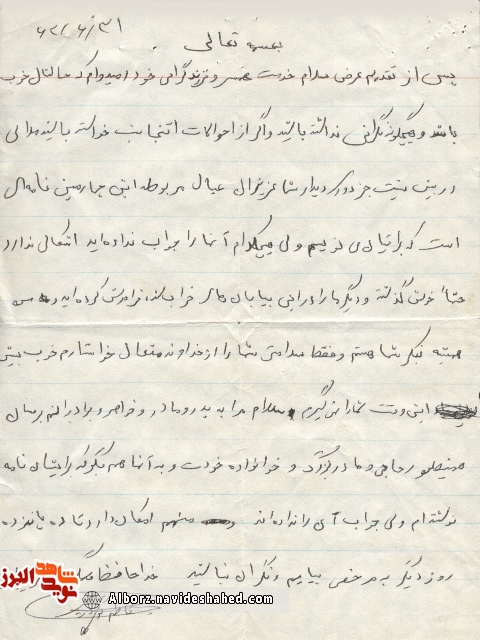 ۶۲/۶/۳۱
بسمه تعالی
پس از تقدیم عرض سلام خدمت همسر و فرزند گرامی خود امیدوارم که حالتان خوب
باشد و هیچگونه نگرانی نداشته باشید و اگر از احوالات اینجانب خواسته باشید ملالی
در بین نیست جز دوری دیدار شما عزیزان عیال مربوطه این چهارمین نامه‌ای
است که برایتان می نویسم ولی هیچکدام آنها را جواب نداده اید اشکالی ندارد
حتماً خوش گذشته و دیگر ما را در این بیابان های خراب شده فراموش کرده اید من
همیشه بفکر شما هستم و فقط سلامتی شما را از خداوند متعال خواستارم خوب بیش
از این وقت شما را نمی گیرم سلام مرا به پدر و مادر و خواهر و برادرانم برسان
همینطور حاجی و مادر بزرگ و خانواده خودت و به آنها هم بگو که برایشان نامه
نوشته ام ولی جواب آن را نداده اند منهم امکان دارد تا ده پانزده
روز دیگر به مرخصی بیایم نگران نباشید خداحافظ
شاهد نوید البرز
Alborz.navideshahed.com